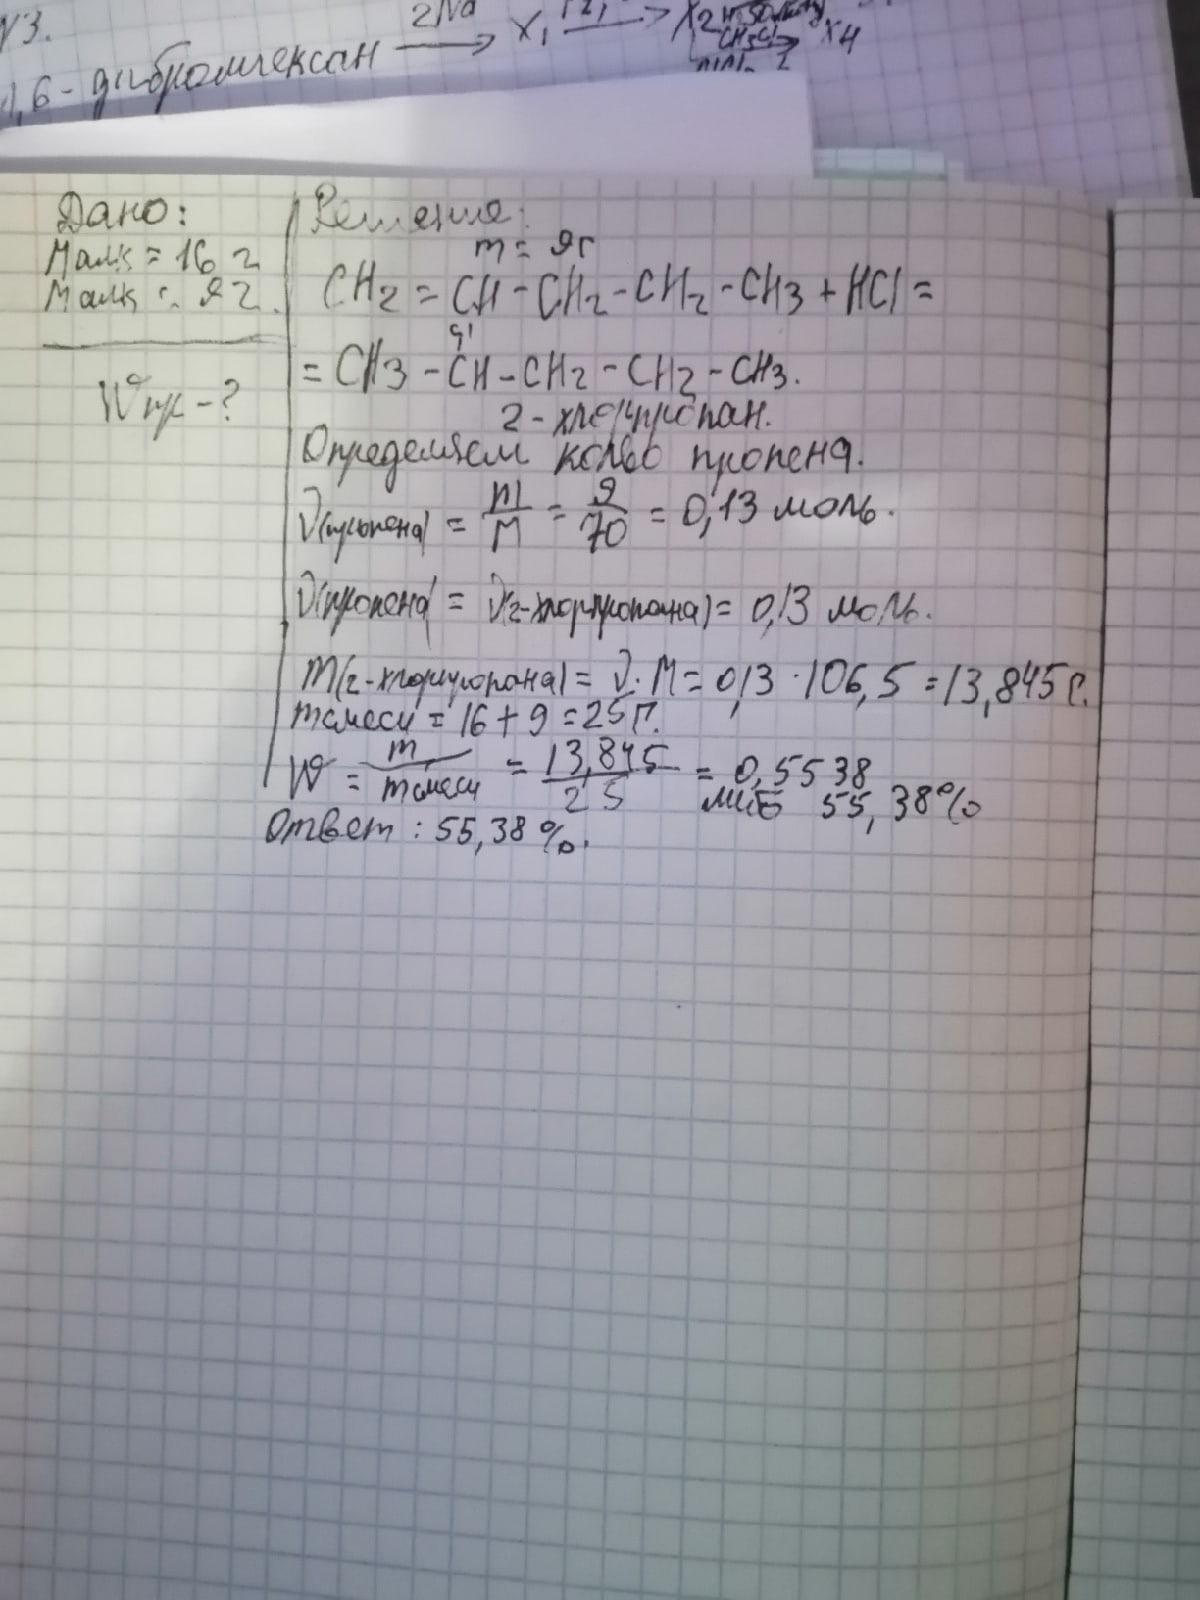 №3.
1,6-дибромгексан 2Na → X₁ → X₂ H₂SO₄ CH₃Cl → X4
Дано:
Mалк = 16 г
Mалк = 9 г.
W пр - ?
Решение:
m = 9г
CH₂ = CH - CH₂ - CH₂ - CH3 + HCl =
Cl
= CH3 - CH - CH₂ - CH₂ - CH3.
2-хлорпропан.
Определяем кол-во пропена.
ν(пропена) = m/M = 9/70 = 0,13 моль.
ν(пропена) = ν(2-хлорпропана) = 0,13 моль.
m(2-хлорпропана) = ν · M = 0,13 · 106,5 = 13,845 г.
mсмеси = 16 + 9 = 25 г.
W = m/mсмеси = 13,845/25 = 0,5538
либо 55,38%
Ответ: 55,38%.